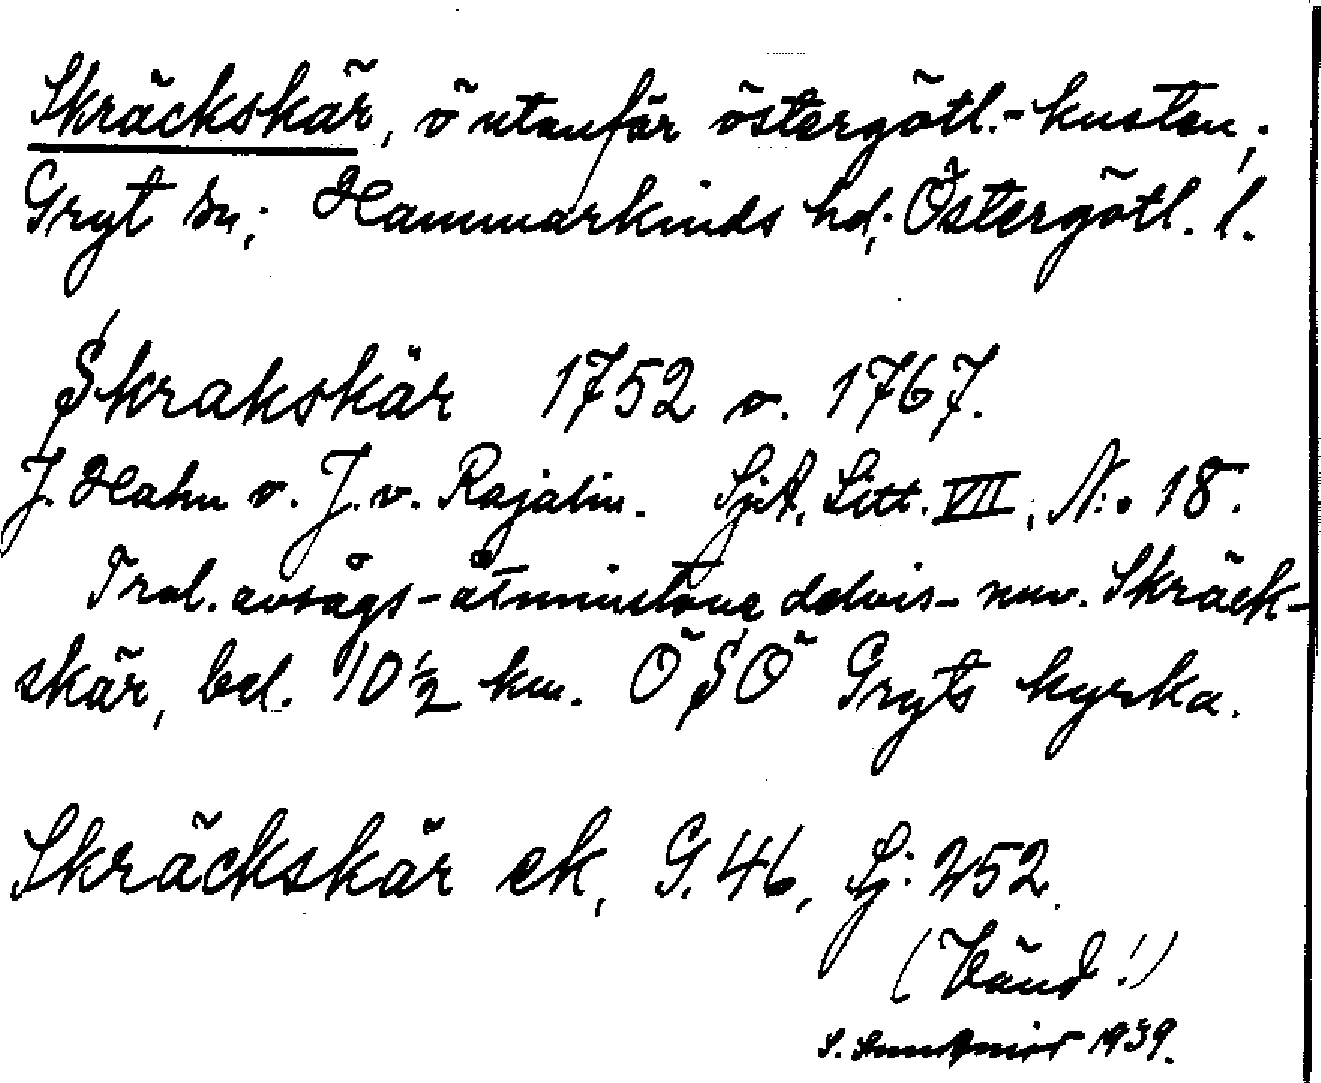 Skräckskär, ö utanför östergötl.-kusten;
Gryt sn; Hammarkinds hd; Östergötl. l.
Skrakskär 1752 o. 1767.
J. Hahn o. J. v. Rajalin. SjA, Litt. VII, N:o 18.
Trol. avsågs - åtminstone delvis - nuv. Skräck-
skär, bel. 10 1/2 km. ÖSÖ Gryts kyrka.
Skräckskär ek, G. 46, Sj: 252.
(Vänd!)
S. 1939.